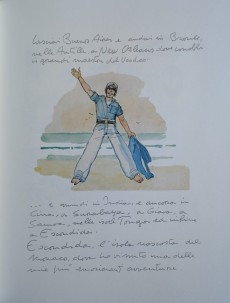 Lasciai Buenos Aires e andai in Brasile,
nelle Antille, a New Orleans dove conobbi
i grandi maestri del
... e quindi in India e ancora in
Cina, a Surabaya, a Giava, a
Samoa, nelle isole Tonga ed infine
a Escondida.
Escondida, l'isola nascosta del
Monaco, dove ho vissuto una delle
mie più emozionanti avventure